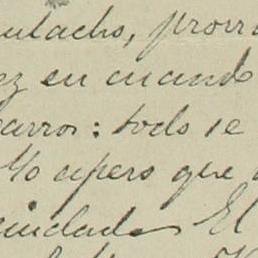 ulacho, prorro
ez en cuando
arros: todo se
Yo espero que
ciudad El